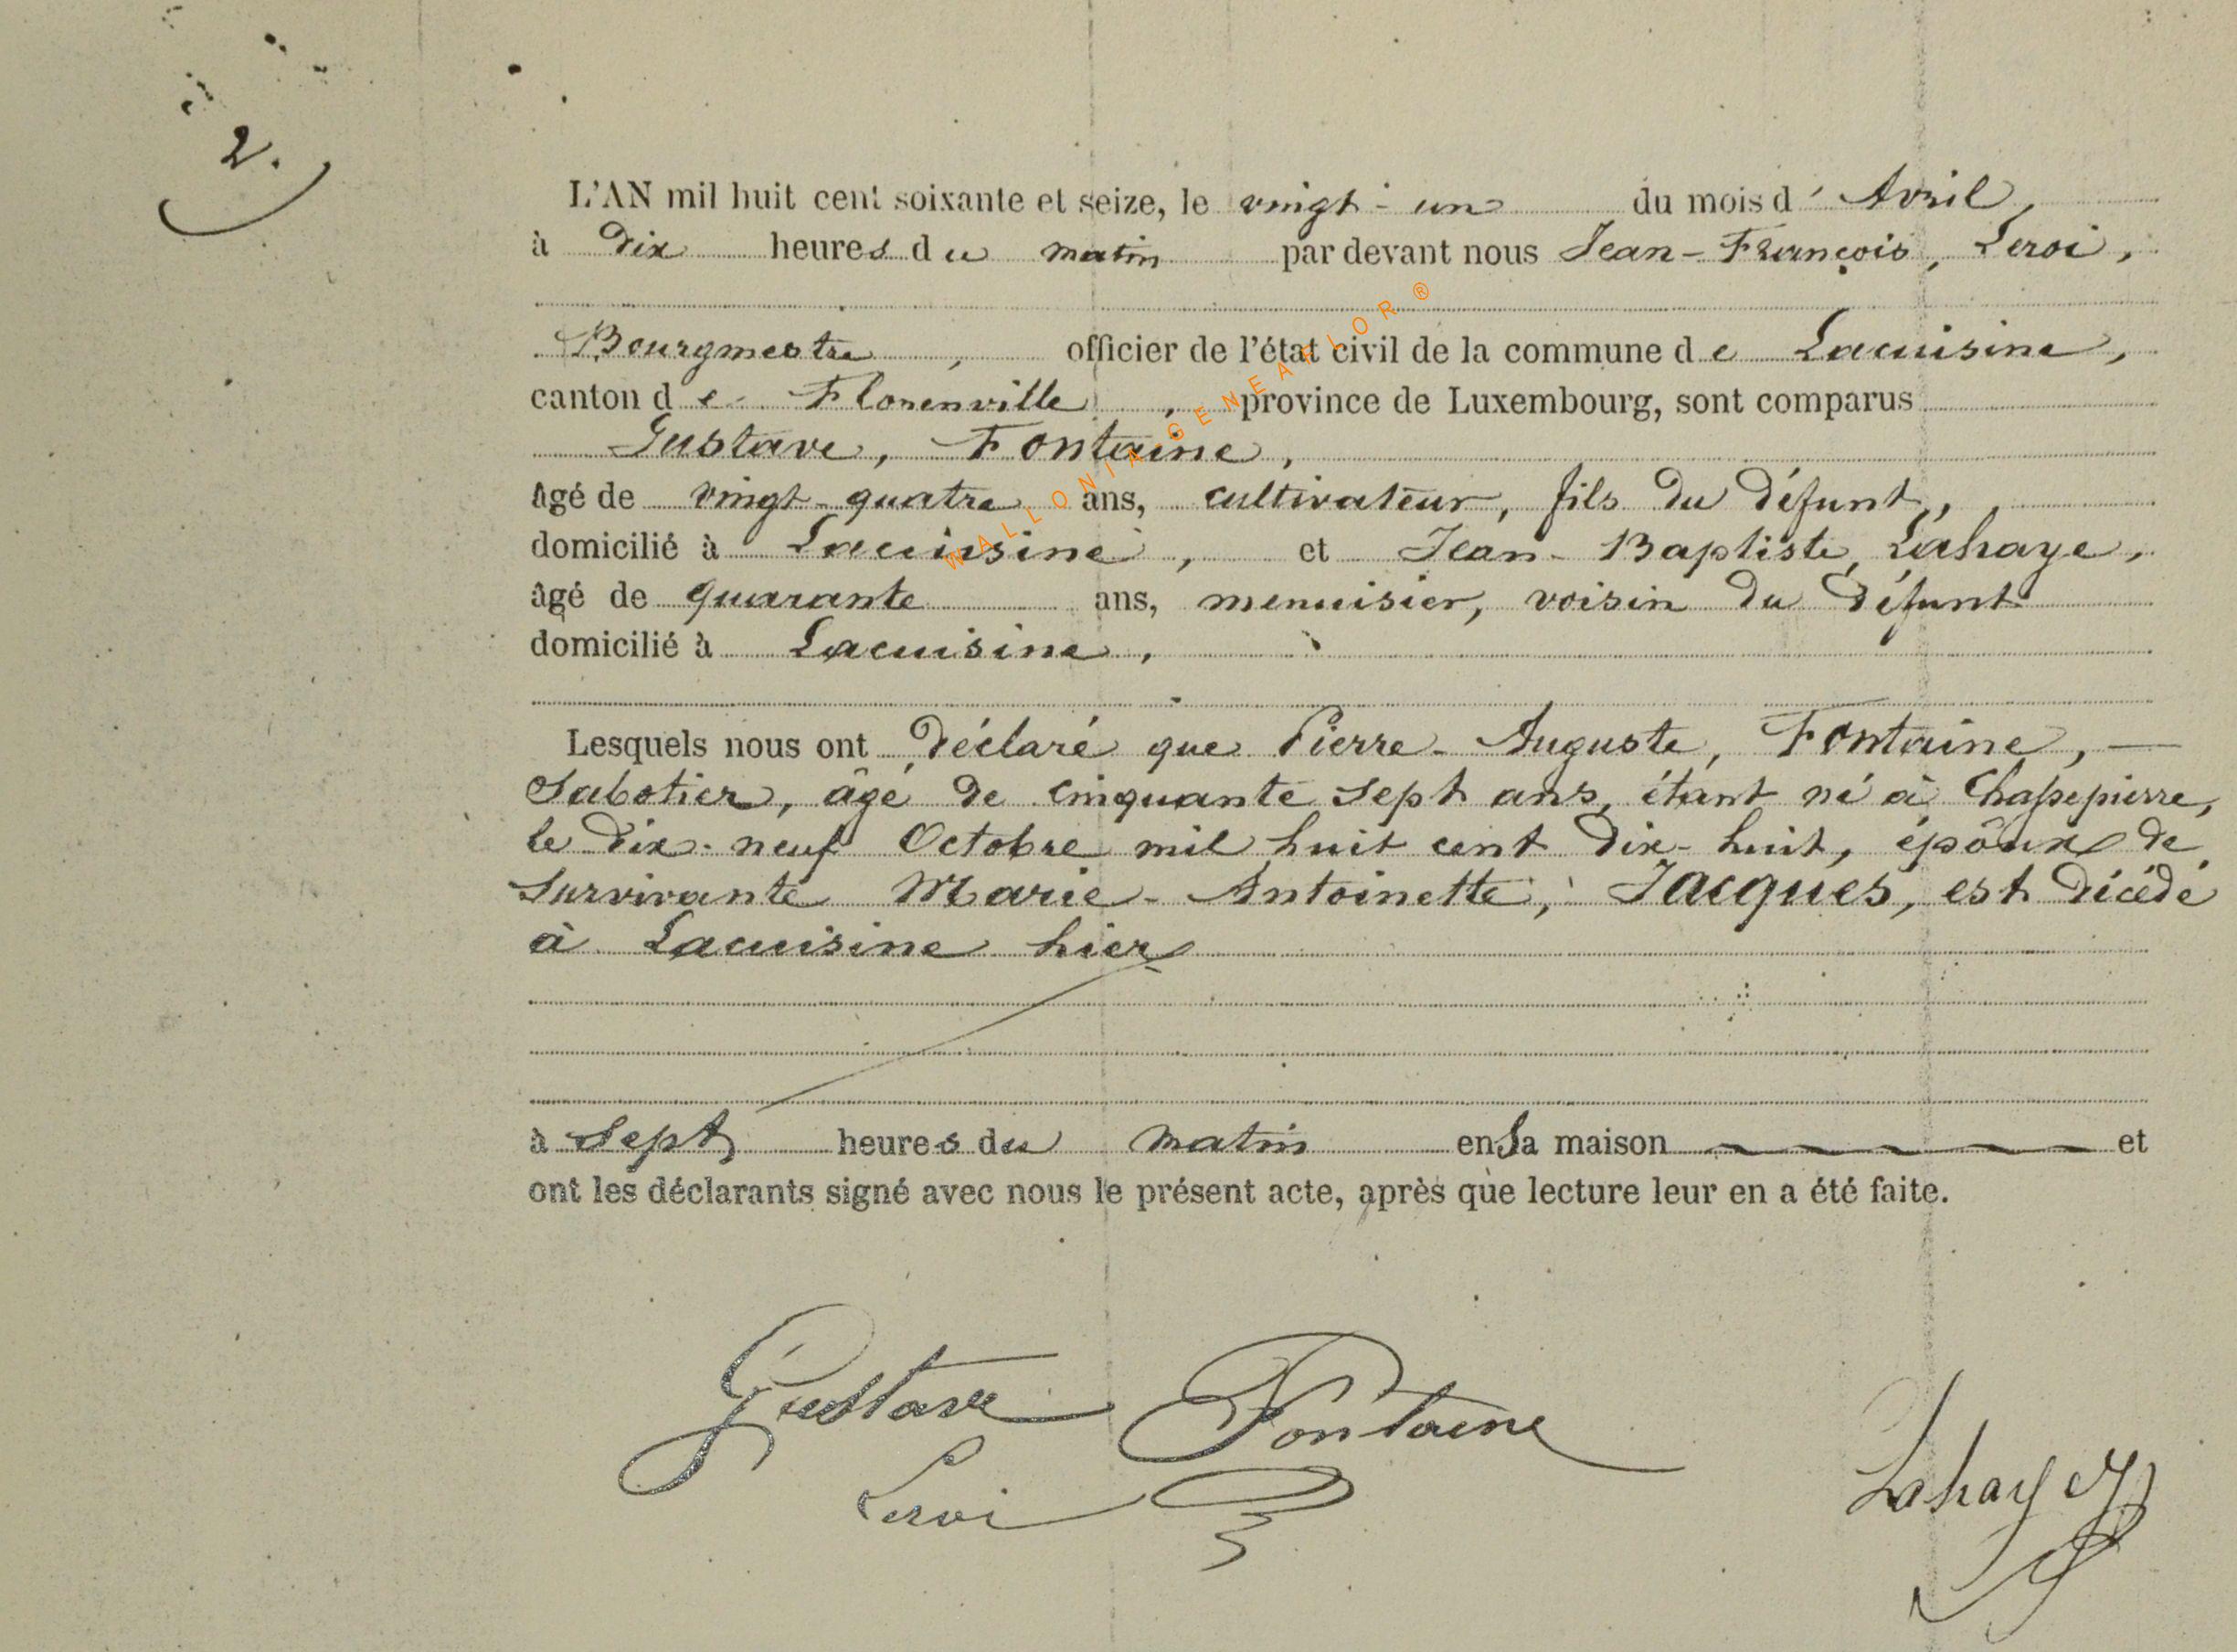 2.
L'AN mil huit cent soixante et seize, le vingt-un du mois d'Avril,
à dix heures du matin par devant nous Jean-François, Leroi,
Bourgmestre, officier de l'état civil de la commune de Lacuisine,
canton de Florenville, province de Luxembourg, sont comparus
Gustave, Fontaine,
âgé de vingt-quatre ans, cultivateur, fils du défunt,
domicilié à Lacuisine, et Jean-Baptiste, Lahaye,
âgé de quarante ans, menuisier, voisin du défunt
domicilié à Lacuisine,
Lesquels nous ont déclaré que Pierre-Auguste, Fontaine, —
Sabotier, âgé de cinquante sept ans, étant né à Chassepierre,
le dix-neuf Octobre mil huit cent dix-huit, époux de
survivante Marie-Antoinette, Jacques, est décédé
à Lacuisine hier
à sept heures du matin en sa maison et
ont les déclarants signé avec nous le présent acte, après que lecture leur en a été faite.
Gustave Fontaine
Leroi
Lahaye
WALLONIA GENEAFLOR ®